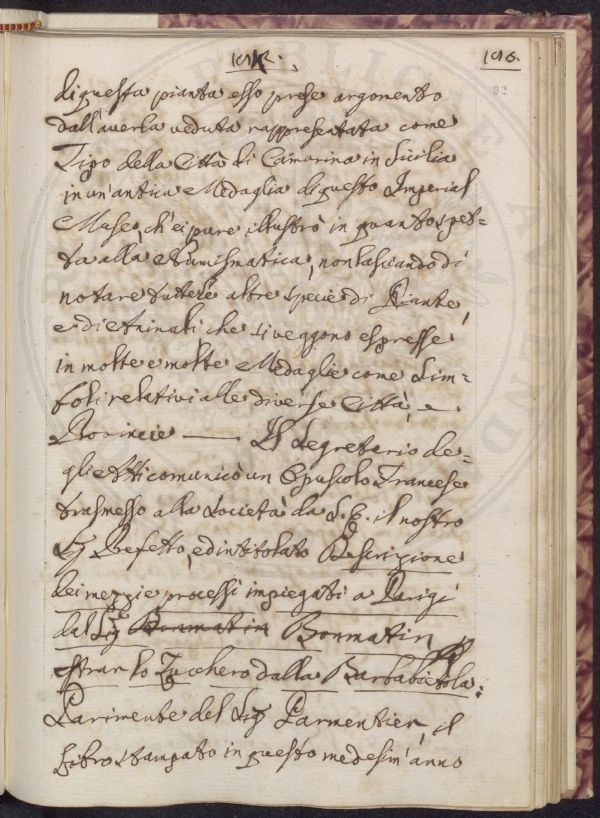 196.
92
di questa pianta esso prese argomento
dall'averla veduta rappresentata come
Tipo della Città di Camarina in Sicilia
in un'antica Medaglia di questo Imperial
Museo, ch'ei pure illustrò in quanto spet=
ta alla Numismatica, non lasciando di
notare tutte le altre specie di Piante,
e di Animali che si veggono espresse
in molte e molte Medaglie come Sim=
boli relativi alle diverse Città, e
Provincie — Il Segretario de=
gli Atti comunicò un Opuscolo Francese
trasmesso alla Società da S. E. il nostro
Sig Prefetto, ed intitolato Descrizione
dei mezzi e processi impiegati a Parigi
dal Sig Bonmatin Bonmatin p
estrar lo Zucchero dalla Barbabietola:
Parimente del Sig Parmentier, il
Libro stampato in questo medesim'anno